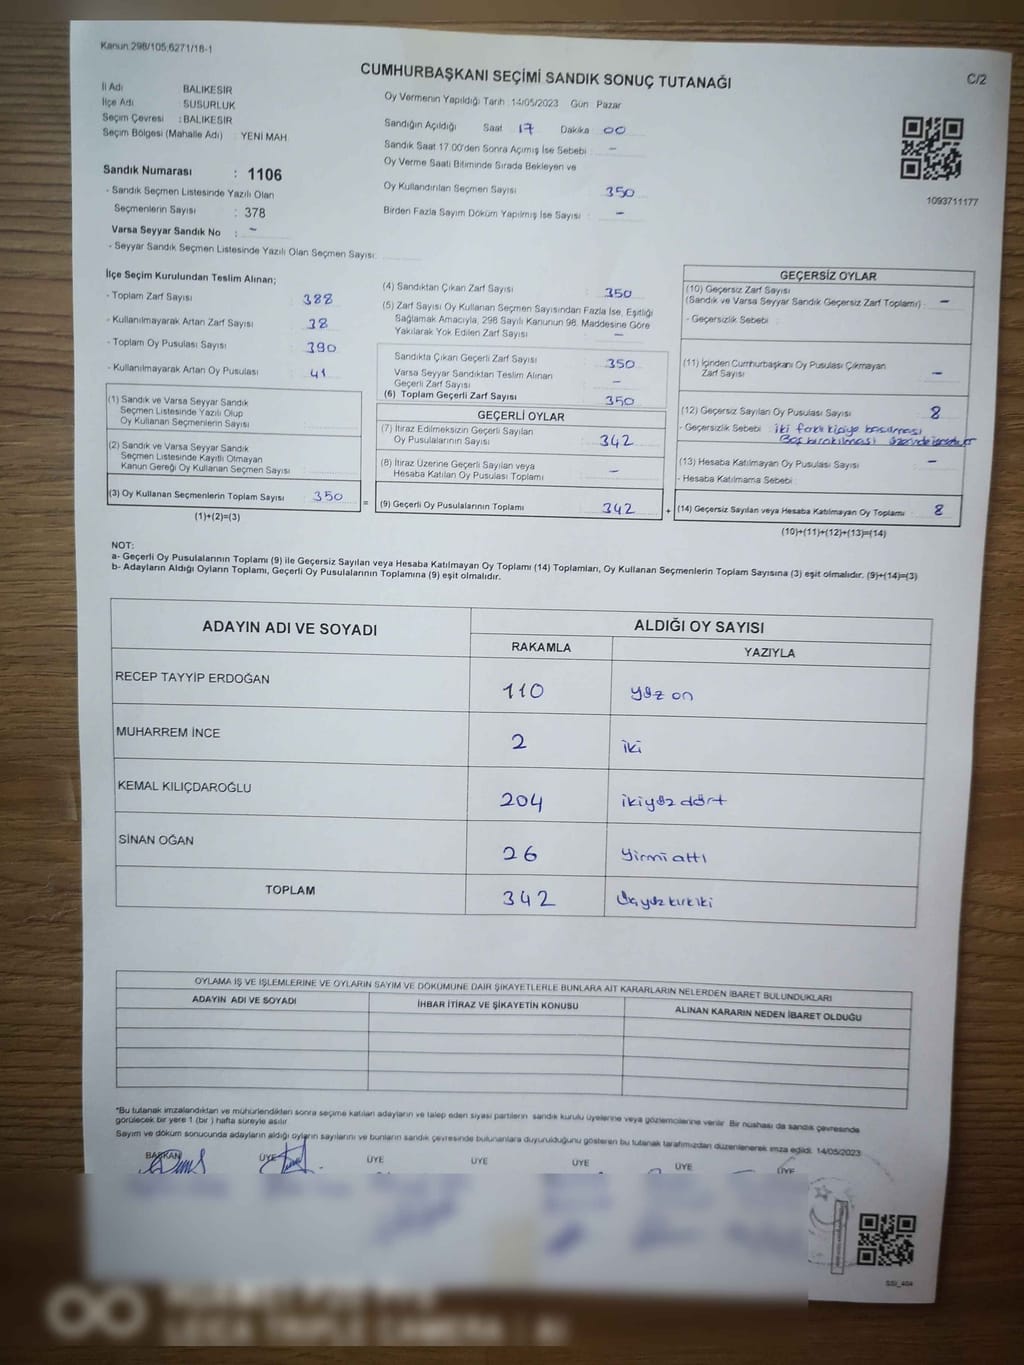 Kanun.298/105,6271/18-1
CUMHURBAŞKANI SEÇİMİ SANDIK SONUÇ TUTANAĞI
C/2
İl Adı BALIKESİR
İlçe Adı SUSURLUK
Seçim Çevresi : BALIKESİR
Seçim Bölgesi (Mahalle Adı) : YENİ MAH.
Oy Vermenin Yapıldığı Tarih 14/05/2023 Gün Pazar
Sandığın Açıldığı Saat 17 Dakika 00
Sandık Saat 17.00'den Sonra Açımış İse Sebebi : -
Oy Verme Saati Bitiminde Sırada Bekleyen ve
Oy Kullandırılan Seçmen Sayısı 350
Birden Fazla Sayım Döküm Yapılmış İse Sayısı : -
1093711177
Sandık Numarası : 1106
- Sandık Seçmen Listesinde Yazılı Olan
Seçmenlerin Sayısı : 378
Varsa Seyyar Sandık No : -
- Seyyar Sandık Seçmen Listesinde Yazılı Olan Seçmen Sayısı:
İlçe Seçim Kurulundan Teslim Alınan;
- Toplam Zarf Sayısı 388
- Kullanılmayarak Artan Zarf Sayısı 38
- Toplam Oy Pusulası Sayısı 390
- Kullanılmayarak Artan Oy Pusulası 41
(1) Sandık ve Varsa Seyyar Sandık
Seçmen Listesinde Yazılı Olup
Oy Kullanan Seçmenlerin Sayısı
(2) Sandık ve Varsa Seyyar Sandık
Seçmen Listesinde Kayıtlı Olmayan
Kanun Gereği Oy Kullanan Seçmen Sayısı
(3) Oy Kullanan Seçmenlerin Toplam Sayısı 350 =
(1)+(2)=(3)
(4) Sandıktan Çıkan Zarf Sayısı 350
(5) Zarf Sayısı Oy Kullanan Seçmen Sayısından Fazla İse, Eşitliği
Sağlamak Amacıyla, 298 Sayılı Kanunun 98. Maddesine Göre
Yakılarak Yok Edilen Zarf Sayısı -
Sandıkta Çıkan Geçerli Zarf Sayısı 350
Varsa Seyyar Sandıktan Teslim Alınan
Geçerli Zarf Sayısı -
(6) Toplam Geçerli Zarf Sayısı 350
GEÇERLİ OYLAR
(7) İtiraz Edilmeksizin Geçerli Sayılan
Oy Pusulalarının Sayısı 342
(8) İtiraz Üzerine Geçerli Sayılan veya
Hesaba Katılan Oy Pusulası Toplamı -
(9) Geçerli Oy Pusulalarının Toplamı 342 +
GEÇERSİZ OYLAR
(10) Geçersiz Zarf Sayısı
(Sandık ve Varsa Seyyar Sandık Geçersiz Zarf Toplamı) -
- Geçersizlik Sebebi :
(11) İçinden Cumhurbaşkanı Oy Pusulası Çıkmayan
Zarf Sayısı -
(12) Geçersiz Sayılan Oy Pusulası Sayısı 8
- Geçersizlik Sebebi iki farklı kişiye basılması
Boş bırakılması
(13) Hesaba Katılmayan Oy Pusulası Sayısı -
- Hesaba Katılmama Sebebi
(14) Geçersiz Sayılan veya Hesaba Katılmayan Oy Toplamı 8
(10)+(11)+(12)+(13)=(14)
NOT:
a- Geçerli Oy Pusulalarının Toplamı (9) ile Geçersiz Sayılan veya Hesaba Katılmayan Oy Toplamı (14) Toplamları, Oy Kullanan Seçmenlerin Toplam Sayısına (3) eşit olmalıdır. (9)+(14)=(3)
b- Adayların Aldığı Oyların Toplamı, Geçerli Oy Pusulalarının Toplamına (9) eşit olmalıdır.
ADAYIN ADI VE SOYADI ALDIĞI OY SAYISI
RAKAMLA YAZIYLA
RECEP TAYYİP ERDOĞAN 110 yüz on
MUHARREM İNCE 2 iki
KEMAL KILIÇDAROĞLU 204 ikiyüz dört
SİNAN OĞAN 26 yirmi altı
TOPLAM 342 üçyüz kırkiki
OYLAMA İŞ VE İŞLEMLERİNE VE OYLARIN SAYIM VE DÖKÜMÜNE DAİR ŞİKAYETLERLE BUNLARA AİT KARARLARIN NELERDEN İBARET BULUNDUKLARI
ADAYIN ADI VE SOYADI İHBAR İTİRAZ VE ŞİKAYETİN KONUSU ALINAN KARARIN NEDEN İBARET OLDUĞU
*Bu tutanak imzalandıktan ve mühürlendikten sonra seçime katılan adayların ve talep eden siyasi partilerin sandık kurulu üyelerine veya gözlemcilerine verilir. Bir nüshası da sandık çevresinde
görülecek bir yere 1 (bir) hafta süreyle asılır
Sayım ve döküm sonucunda adayların aldığı oyların sayılarını ve bunların sandık çevresinde bulunanlara duyurulduğunu gösteren bu tutanak tarafımızdan düzenlenerek imza edildi. 14/05/2023
BAŞKAN ÜYE ÜYE ÜYE ÜYE ÜYE ÜYE
SSİ_404